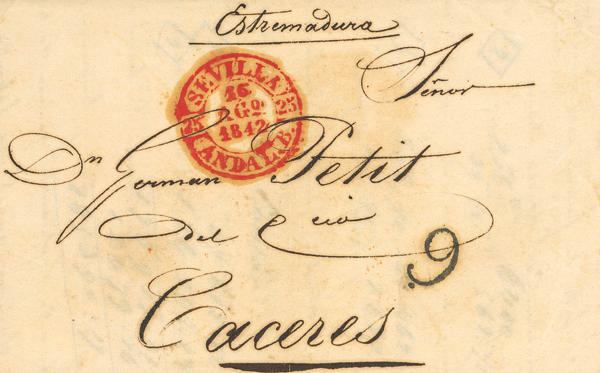 Estremadura
SEVILLA
25 25
16
AGO.
1842
ANDAL. B.
Señor
Dn German Petit
del Cio
9
Caceres